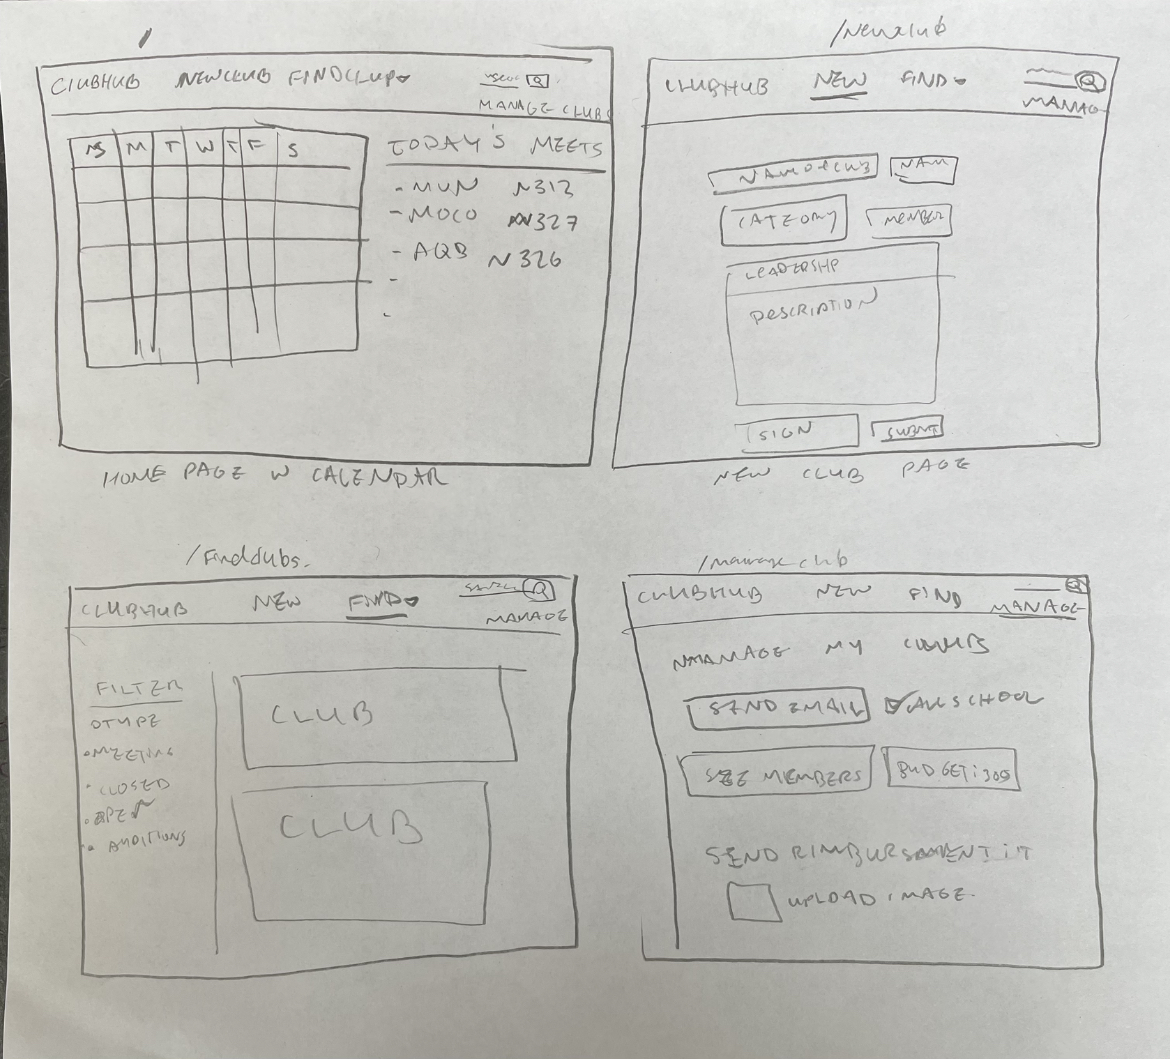 /
CLUBHUB NEWCLUB FINDCLUB
MANAGE CLUBS
S M T W T F S
TODAY'S MEETS
- MUN N312
- MOCO N327
- AQB N326
-
HOME PAGE W CALENDAR
/Newclub
CLUBHUB NEW FIND
MANAG
NAME OF CLUB NAM
CATEGORY MEMBER
LEADERSHP
DESCRIPTION
SIGN SUBMT
NEW CLUB PAGE
/Findclubs.
CLUBHUB NEW FIND
MANAGE
FILTER
OTYPE
• MEETING
• CLOSED
• OPEN
• AUDITIONS
CLUB
CLUB
/manage club
CLUBHUB NEW FIND
MANAGE
MANAGE MY CLUBS
SEND EMAIL ALL SCHOOL
SEE MEMBERS BUDGET: 300
SEND RIMBURSMENT
UPLOAD IMAGE.